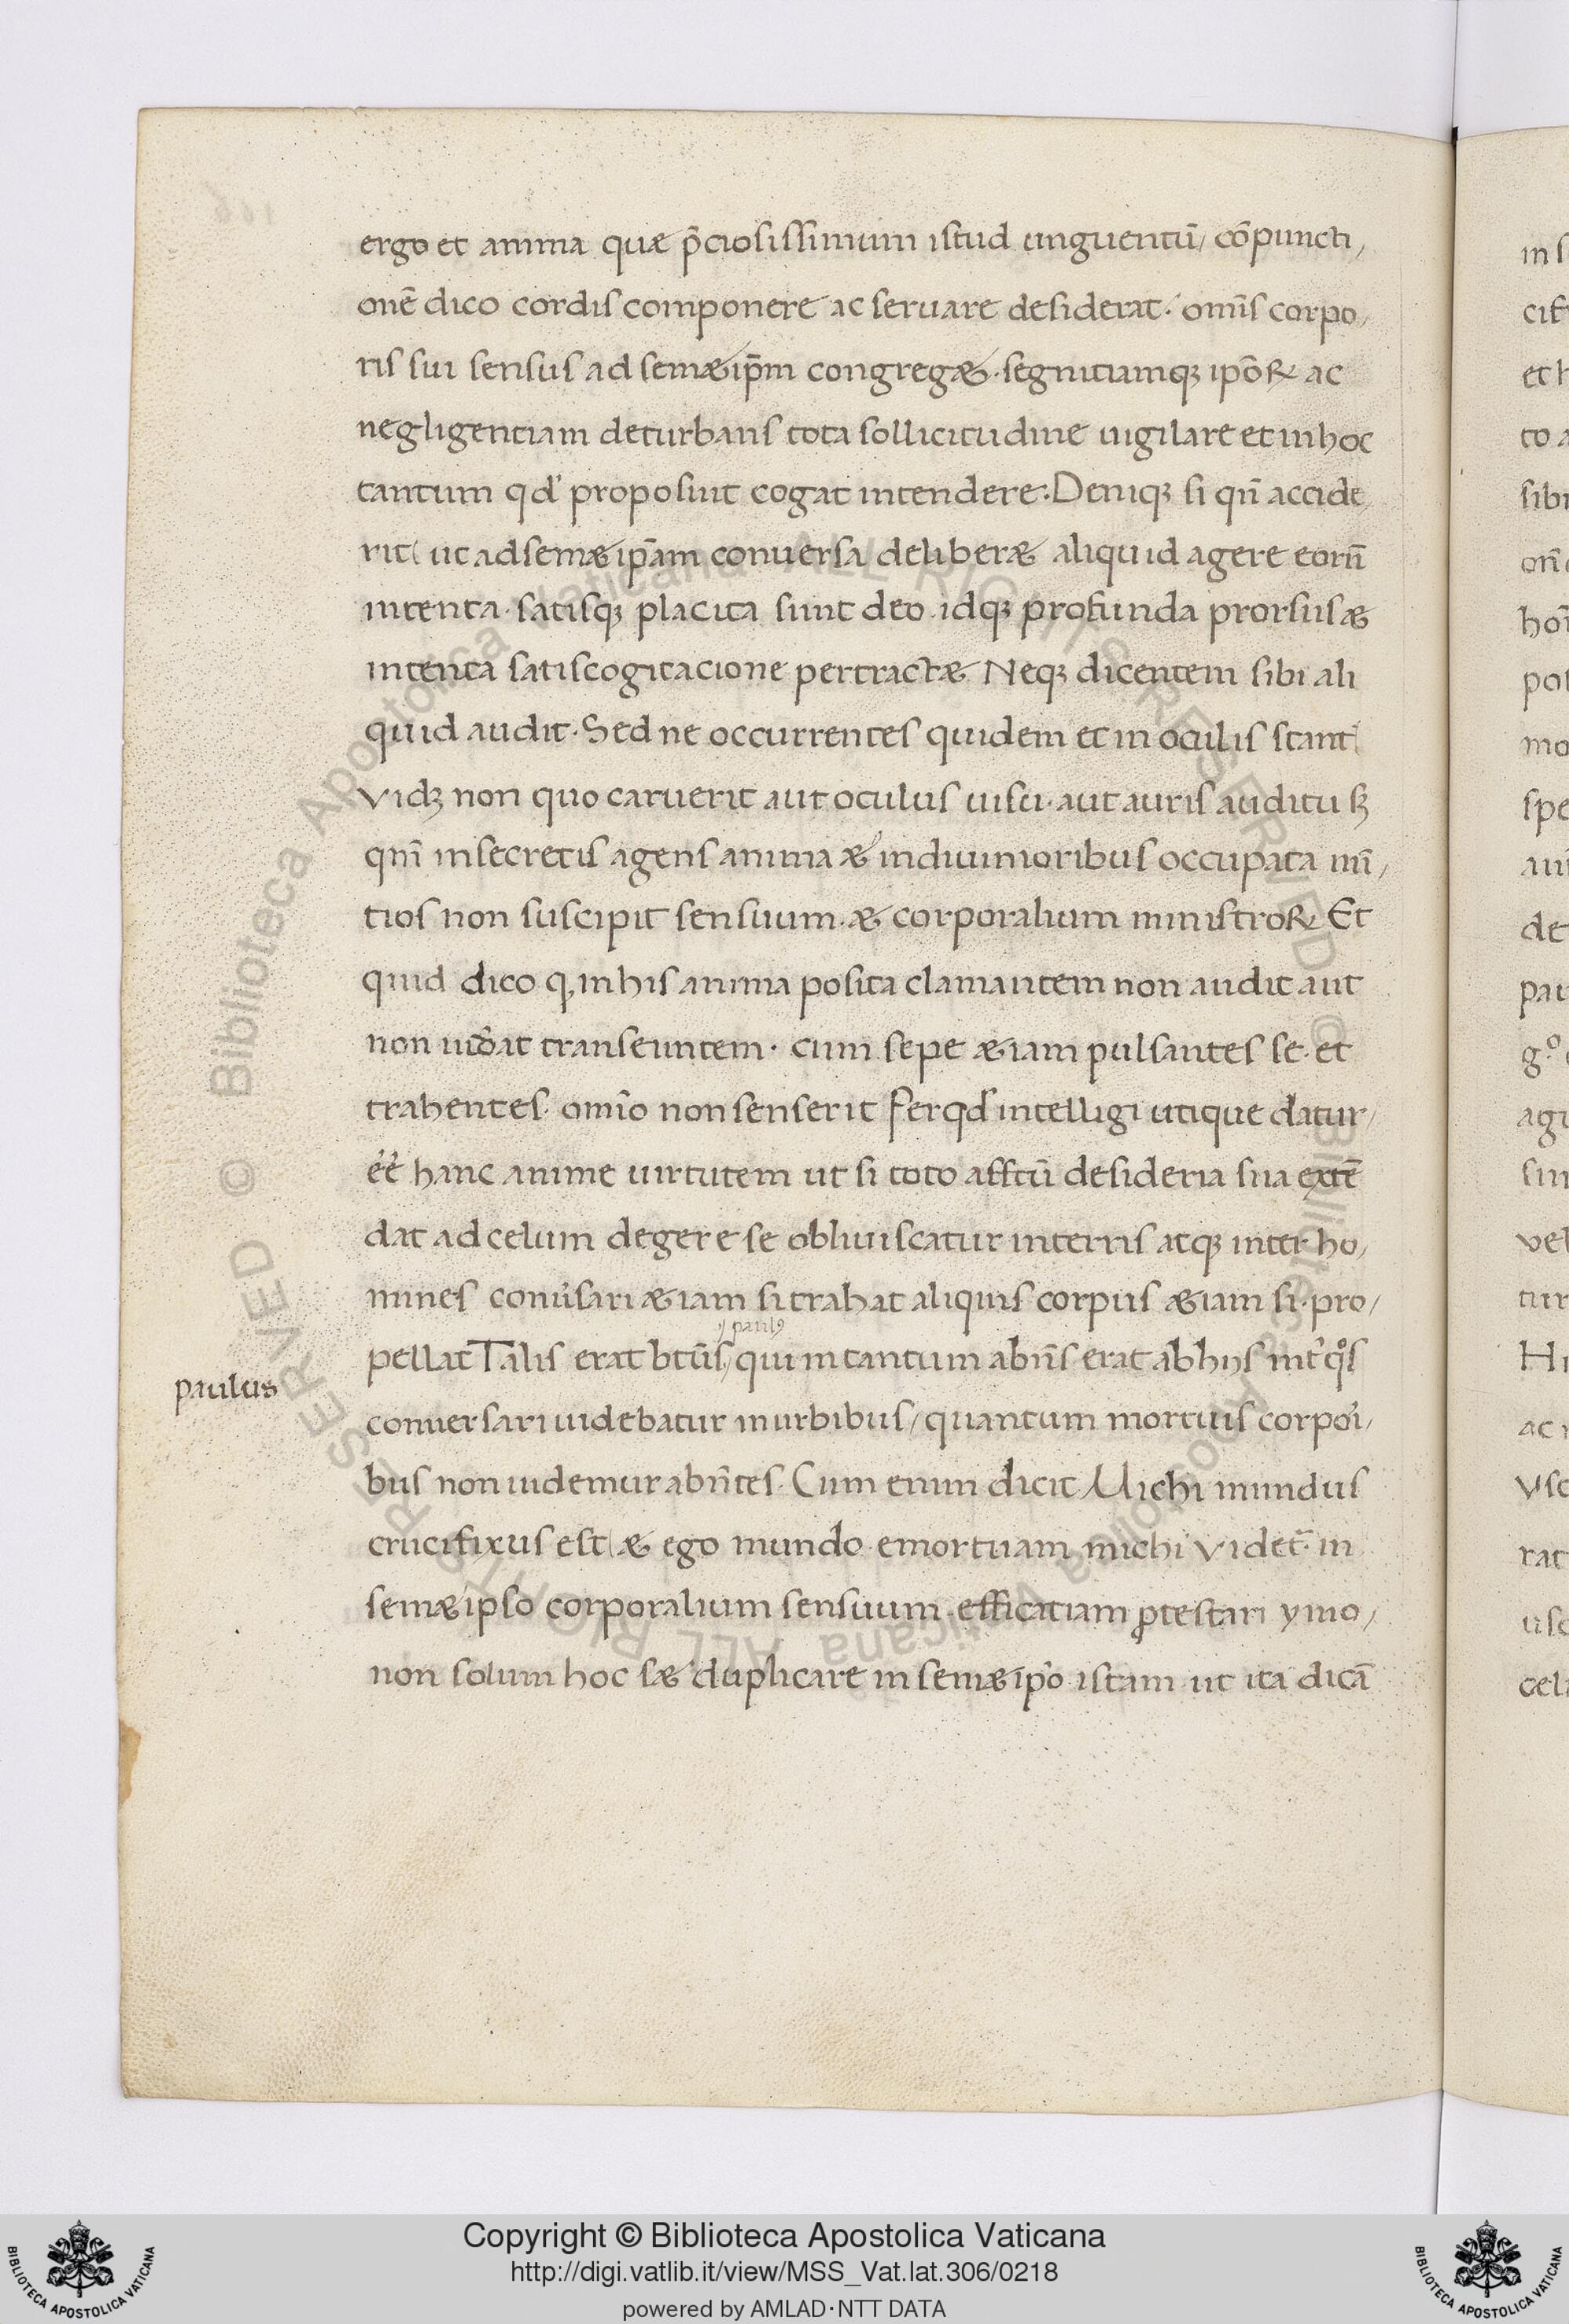 ergo et anima quæ p̄ciosissimum istud unguentū/ cōpuncti/
onē dico cordis componere ac seruare desiderat. omīs corpo/
ris sui sensus ad semæip̄m congregæ. segnitiamqꝫ ipōꝝ ac
negligentiam deturbans tota sollicitudine uigilare et in hoc
tantum qd' proposuit cogat intendere: Deniqꝫ si qn̄ accide/
rit ut ad semæip̄am conuersa deliberæ aliquid agere eorū
intenta. satisqꝫ placita sunt deo. idqꝫ profunda prorsus æ
intenta satis cogitacione pertractæ. Neqꝫ dicentem sibi ali
quid audit. Sed ne occurrentes quidem et in oculis stant
vidꝫ non quo caruerit aut oculus uisu. aut auris auditu sꝫ
qm̄ in secretis agens anima æ in diuinioribus occupata nū/
tios non suscipit sensuum. æ corporalium ministroꝝ Et
quid dico q, in his anima posita clamantem non audit aut
non uideat transeuntem. cum sepe æiam pulsantes se. et
trahentes. omīo non senserit Per qd' intelligi utique datur/
ēē hanc anime uirtutem ut si toto affctū desideria sua extē
dat ad celum degere se obliuiscatur in terris atqꝫ inter ho/
mines conu̓sari æiam si trahat aliquis corpus æiam si. pro/
pellat Talis erat btūs/ qui in tantum abn̄s erat ab hijs int̓ qͦs
paulꝰ
paulus
conuersari uidebatur in urbibus/ quantum mortuis corpoi̓/
bus non uidemur abn̄tes. Cum enim dicit. Michi mundus
crucifixus est æ ego mundo emortuam michi videt̄. in
semæipso corporalium sensuum. efficatiam ꝓtestari ymo/
non solum hoc sæ duplicare in semæip̄o istam ut ita dicā
Copyright © Biblioteca Apostolica Vaticana
http://digi.vatlib.it/view/MSS_Vat.lat.306/0218
powered by AMLAD·NTT DATA